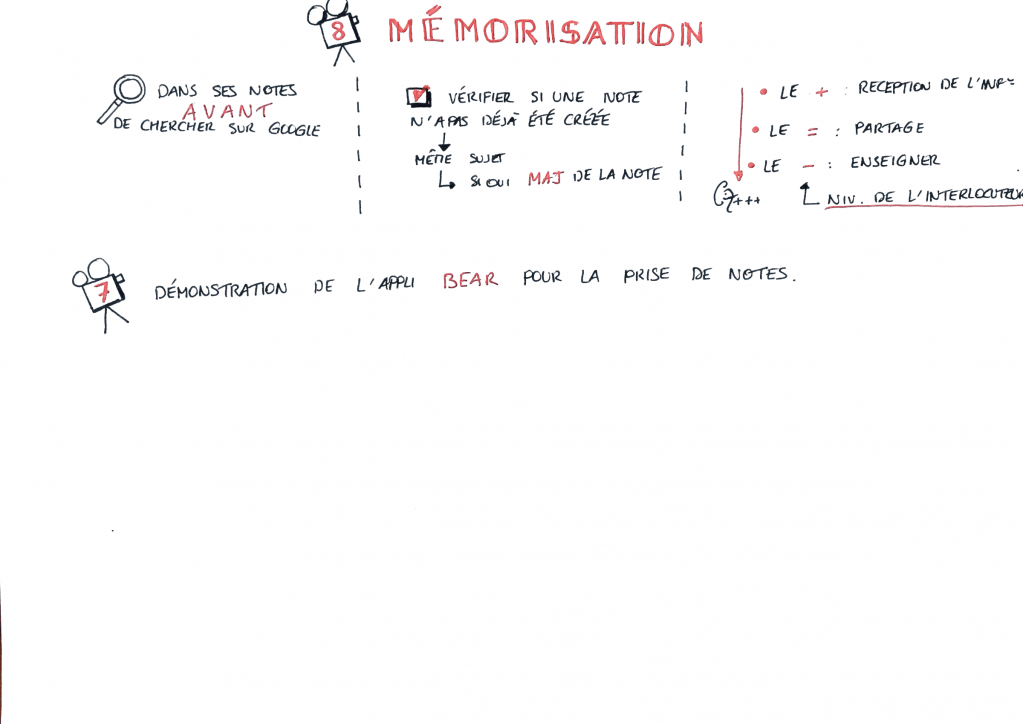 8 MÉMORISATION
DANS SES NOTES
AVANT
DE CHERCHER SUR GOOGLE
VÉRIFIER SI UNE NOTE
N'A PAS DÉJÀ ÉTÉ CRÉÉE
MÊME SUJET
SI OUI MAJ DE LA NOTE
• LE + : RECEPTION DE L'INF
• LE = : PARTAGE
• LE - : ENSEIGNER
+++
NIV. DE L'INTERLOCUTEUR
7 DÉMONSTRATION DE L'APPLI BEAR POUR LA PRISE DE NOTES.